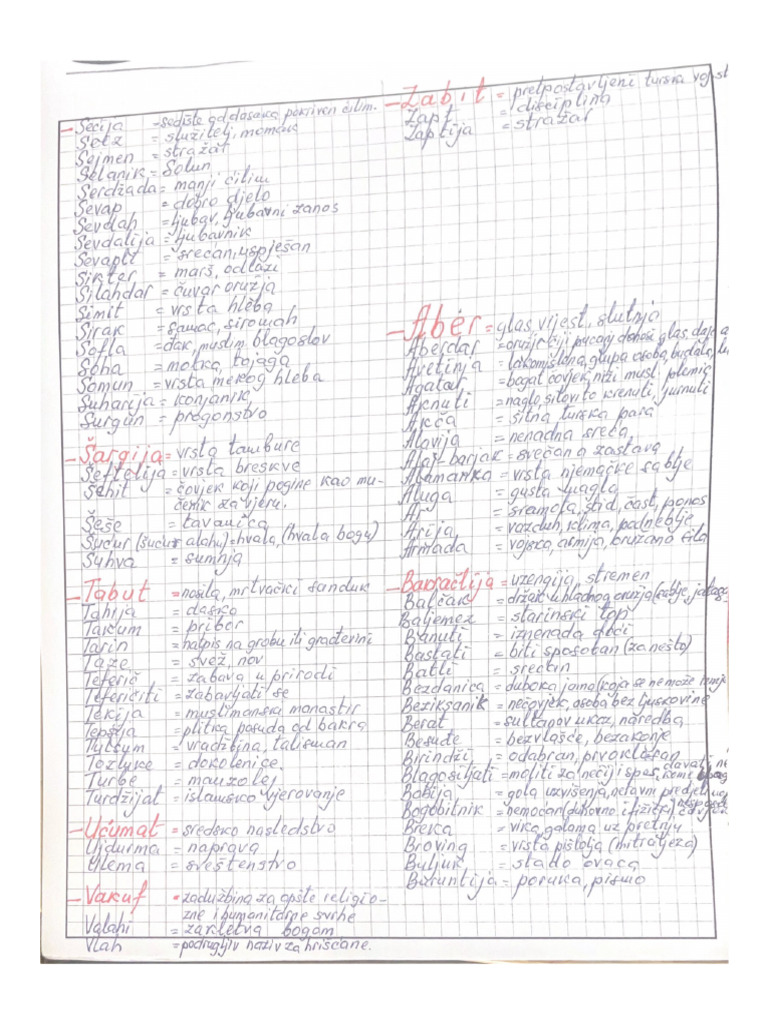 - Sećija - sedište od dasaka pokriven ćilim.
Seiz = služitelj, momak
Sejmen = stražar
Selanik = Solun
Serdžada = manji ćilim
Sevap = dobro djelo
Sevdah = ljubav, ljubavni zanos
Sevdalija = ljubavnik
Sevapli = srećan, uspješan
Sikter = marš, odlazi
Silahdar = čuvar oružja
Simit = vrsta hleba
Sirak = samac, siromah
Sofla = đak, muslim. blagoslov
Soha = motka, tojaga
Somun = vrsta mekog hleba
Suharija = konjanik
Surgun = progonstvo
- Šargija = vrsta tambure
Šeftelija = vrsta breskve
Šehit = čovjek koji pogine kao mu-
čenik za vjeru.
Šeše = tavanica
Šućur (šućur alahu) = hvala, (hvala bogu)
Šuhva = sumnja
- Tabut = nosila, mrtvački sanduk
Tahija = daska
Takum = pribor
Tarih = natpis na grobu ili građevini
Taze = svež, nov
Teferič = zabava u prirodi
Teferičiti = zabavljati se
Tekija = muslimanski manastir
Tepsija = plitka posuda od bakra
Tylsum = vradžbina, talisman
Tozluke = dokolenice
Turbe = mauzolej
Turdžijat = islamsko vjerovanje
- Ućumat = sredsko nasledstvo
Ujdurma = naprava
Ulema = sveštenstvo
- Vakuf = zadužbina za opšte religio-
zne i humanitarne svrhe
Valahi = zakletva bogom
Vlah = podrugljiv naziv za hrišćane.
- Zabit = pretpostavljeni turski voj. st
Zapt = disciplina
Zaptija = stražar
- Aber = glas, vijest, slutnja
Aberdar = oružje čiji pucanj donosi glas, daje
Avetinja = lakomislena, glupa osoba, budala,
Agatar = bogat čovjek, niži musl. plemić
Ajknuti = naglo, silovito krenuti, jurnuti
Akča = sitna turska para
Alovija = nenadna sreća,
Alaj-barjak = svečana zastava
Alamanka = vrsta njemačke sablje
Aluga = gusta magla
Ar = sramota, stid, čast, ponos
Arija = vazduh, klima, podneblje
Armada = vojska, armija, oružana sila
- Bakračlija = uzengija, stremen
Balčak = držak u hladnog oružja (sablje, jataga
Baljemez = starinski top
Banuti = iznenada doći
Bastati = biti sposoban (za nešto)
Batli = srećan
Bezdanica = duboka jama (koja se ne može
Beziksanik = nečovjek, osoba bez ljuskovine
Berat = sultanov ukaz, naredba
Besuđe = bezvlašće, bezakonje
Birindži = odabran, prvoklasan
Blagosiljati = moliti za nečiji spas,
Bobija = gola uzvišenja, neravni predjeli
Bogobitnik = nemoćan (duhovno i fizički)
Breka = vika, galama uz pretnju
Broving = vrsta pištolja (mitraljeza)
Buljuk = stado ovaca
Buruntija = poruka, pismo